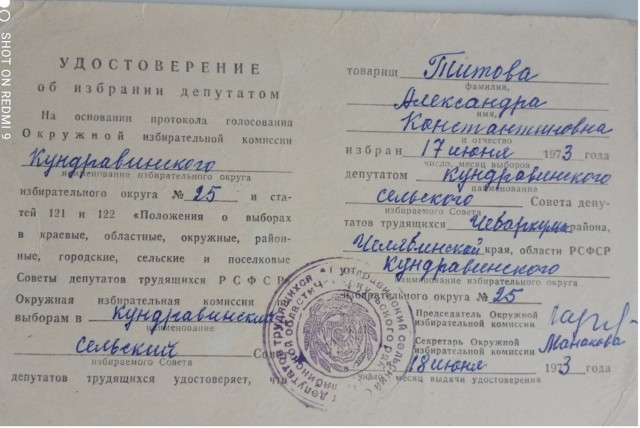 УДОСТОВЕРЕНИЕ
об избрании депутатом
На основании протокола голосования
Окружной избирательной комиссии
Кундравинского
наименование избирательного округа
избирательного округа № 25 и ста-
тей 121 и 122 «Положения о выборах
в краевые, областные, окружные, район-
ные, городские, сельские и поселковые
Советы депутатов трудящихся РСФСР
Окружная избирательная комиссия по
выборам в Кундравинский
наименование
сельский Совет
избираемого Совета
депутатов трудящихся удостоверяет, что
товарищ Титова
фамилия,
Александра
имя,
Константиновна
и отчество
избран 17 июня 1973 года
число, месяц выборов
депутатом Кундравинского
наименование
сельского Совета депу-
избираемого Совета
татов трудящихся Чебаркульс района,
Челябинской края, области РСФСР
Кундравинского
наименование избирательного округа
избирательного округа № 25
Председатель Окружной
избирательной комиссии
Секретарь Окружной Манакова
избирательной комиссии
18 июня 1973 года
число, месяц выдачи удостоверения
SHOT ON REDMI 9